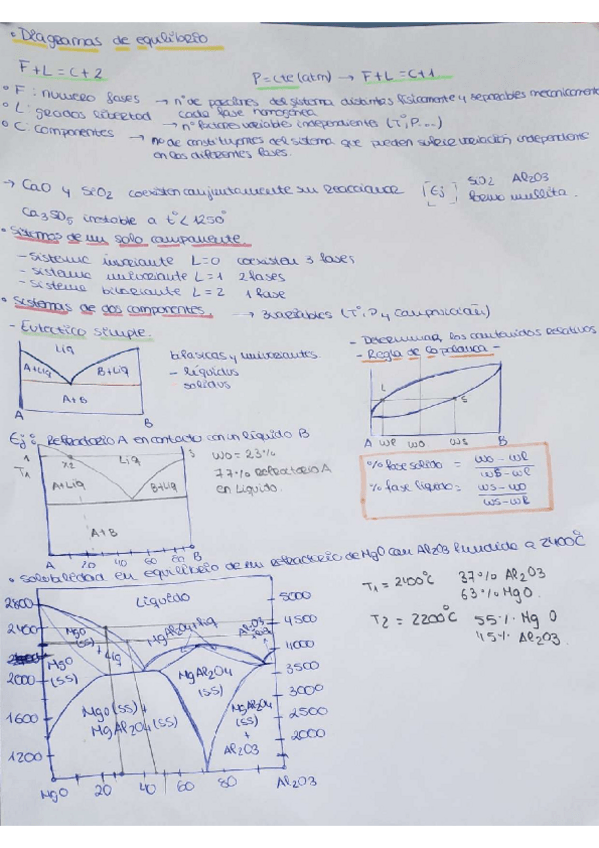 • Diagramas de equilibrio
F+L=C+2
P=cte (atm) → F+L=C+1
• F: numero fases → nº de porciones del sistema distintas fisicamente y separables mecanicamente
cada fase homogénea
• L: grados libertad → nº factores variables independientes (Tº, P...)
• C: componentes → nº de constituyentes del sistema que pueden sufrir variación independiente
en las diferentes fases.
→ CaO y SiO2 coexisten conjuntamente sin reaccionar [Ej
SiO2 Al2O3
mullita.
Ca3SO5 inestable a tº<1250º
• Sistemas de un solo componente
- sistema invariante L=0 coexisten 3 fases
- sistema univariante L=1 2 fases
- sistema bivariante L=2 1 fase
• Sistemas de dos componentes. → 3 variables (Tº, P y composición)
- Eutectico simple.
Liq
A+Liq
B+Liq
A+B
A
B
bifasicas y univariantes.
- liquidus
solidus
- Determinar los contenidos relativos
- Regla de la palanca -
L
S
A wl wo ws B
% fase solido = wo-wl
ws-wl
% fase liquido = ws-wo
ws-wl
Ej: Refractario A en contacto con un liquido B
T1
x2
Liq
A+Liq
B+Liq
A+B
A 20 40 60 80 B
wo=23%
77% Refractario A
en Liquido.
• Solubilidad en equilibrio de un refractario de MgO con Al2O3 fundido a 2400ºC
T1=2400ºC 37% Al2O3
63% MgO.
T2=2200ºC 55% MgO
45% Al2O3.
2800
2400
2000
1600
1200
Líquido
MgO
(SS)
+ Liq
MgAl2O4 Liq
Al2O3
MgO
(SS)
MgAl2O4
(SS)
MgO(SS)+
MgAl2O4(SS)
MgAl2O4
(SS)
+
Al2O3
5000
4500
4000
3500
3000
2500
2000
MgO 20 40 60 80 Al2O3